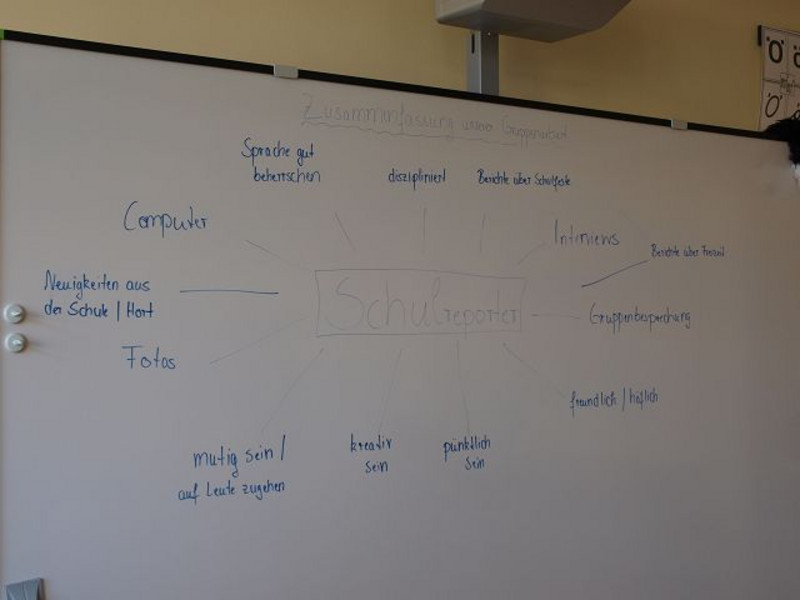 Zusammenfassung unser Gruppenarbeit
Sprache gut
beherrschen
diszipliniert
Berichte über Schulfeste
Computer
Interviews
Berichte über Freizeit
Neuigkeiten aus
der Schule / Hort
Schulreporter
Gruppenbesprechung
Fotos
freundlich / höflich
mutig sein /
auf Leute zugehen
kreativ
sein
pünktlich
sein
Ö